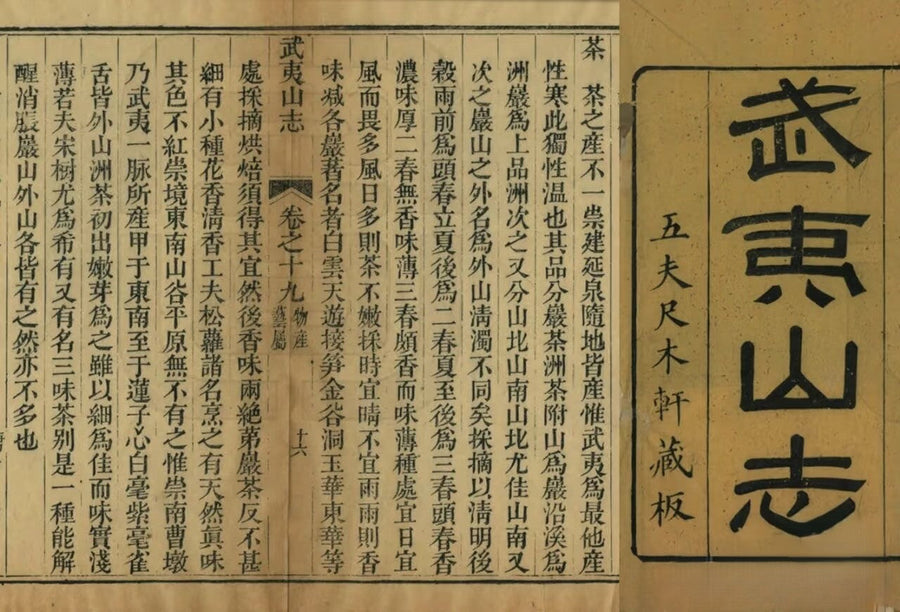 武夷山志
五夫尺木軒藏板
茶　茶之産不一崇建延泉隨地皆産惟武夷爲最他産
性寒此獨性温也其品分巖茶洲茶附山爲巖沿溪爲
洲巖爲上品洲次之又分山北山南山北尤佳山南又
次之巖山之外名爲外山清濁不同矣採摘以清明後
穀雨前爲頭春立夏後爲二春夏至後爲三春頭春香
濃味厚二春無香味薄三春頗香而味薄種處宜日宜
風而畏多風日多則茶不嫩採時宜晴不宜雨雨則香
味減各巖著名者白雲天遊接笋金谷洞玉華東華等
武夷山志　卷之十九　物産　藝屬　十六
處採摘烘焙須得其宜然後香味兩絶第巖茶反不甚
細有小種花香清香工夫松蘿諸名烹之有天然眞味
其色不紅崇境東南山谷平原無不有之惟崇南曹墩
乃武夷一脈所産甲于東南至于蓮子心白毫紫毫雀
舌皆外山洲茶初出嫩芽爲之雖以細爲佳而味實淺
薄若夫宋樹尤爲希有又有名三味茶别是一種能解
醒消脹巖山外山各皆有之然亦不多也